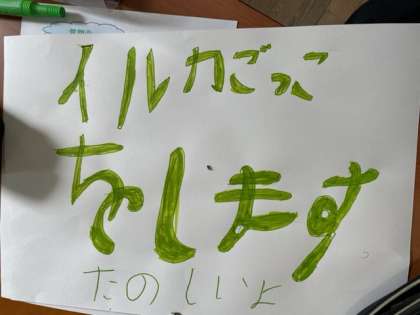 イルカごっこ
をします
たのしいよ